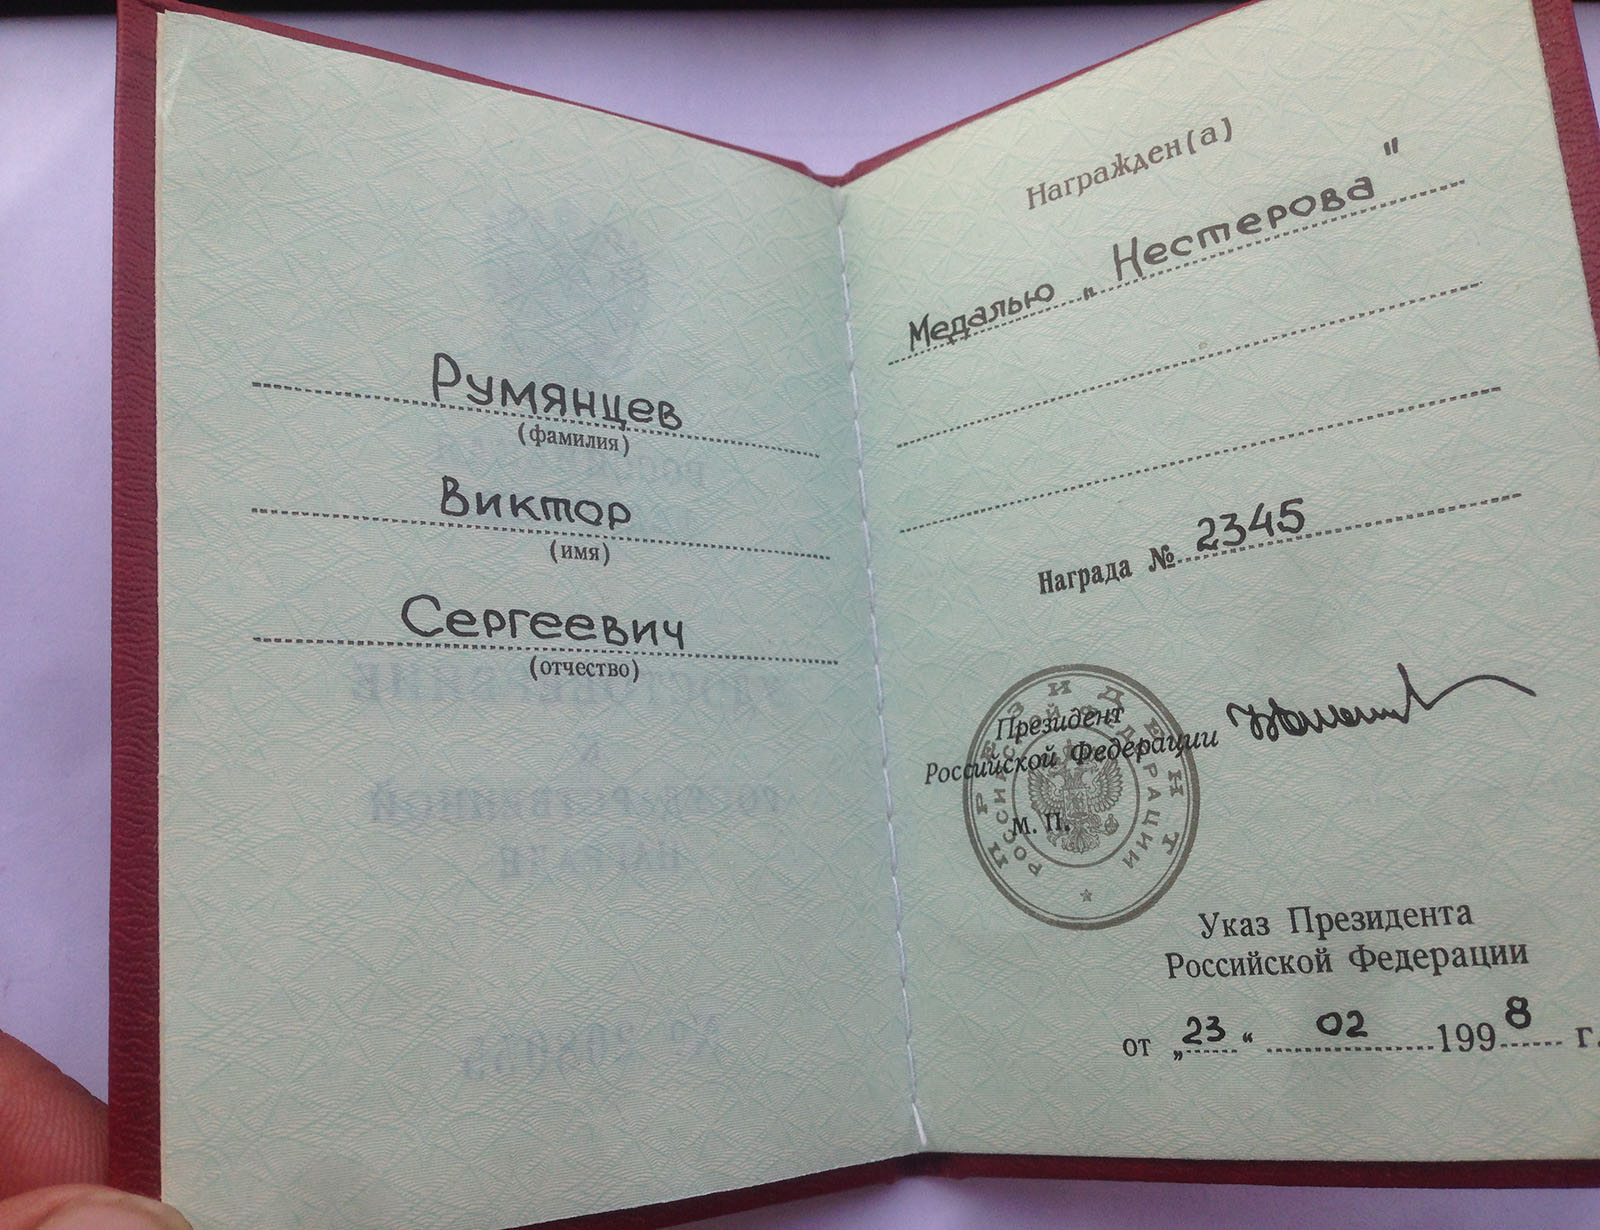 Румянцев
(фамилия)
Виктор
(имя)
Сергеевич
(отчество)
Награжден(а)
Медалью „Нестерова"
Награда № 2345
Президент
Российской Федерации
М. П.
ПРЕЗИДЕНТ
РОССИЙСКОЙ ФЕДЕРАЦИИ
Указ Президента
Российской Федерации
от „23“ 02 1998 г.